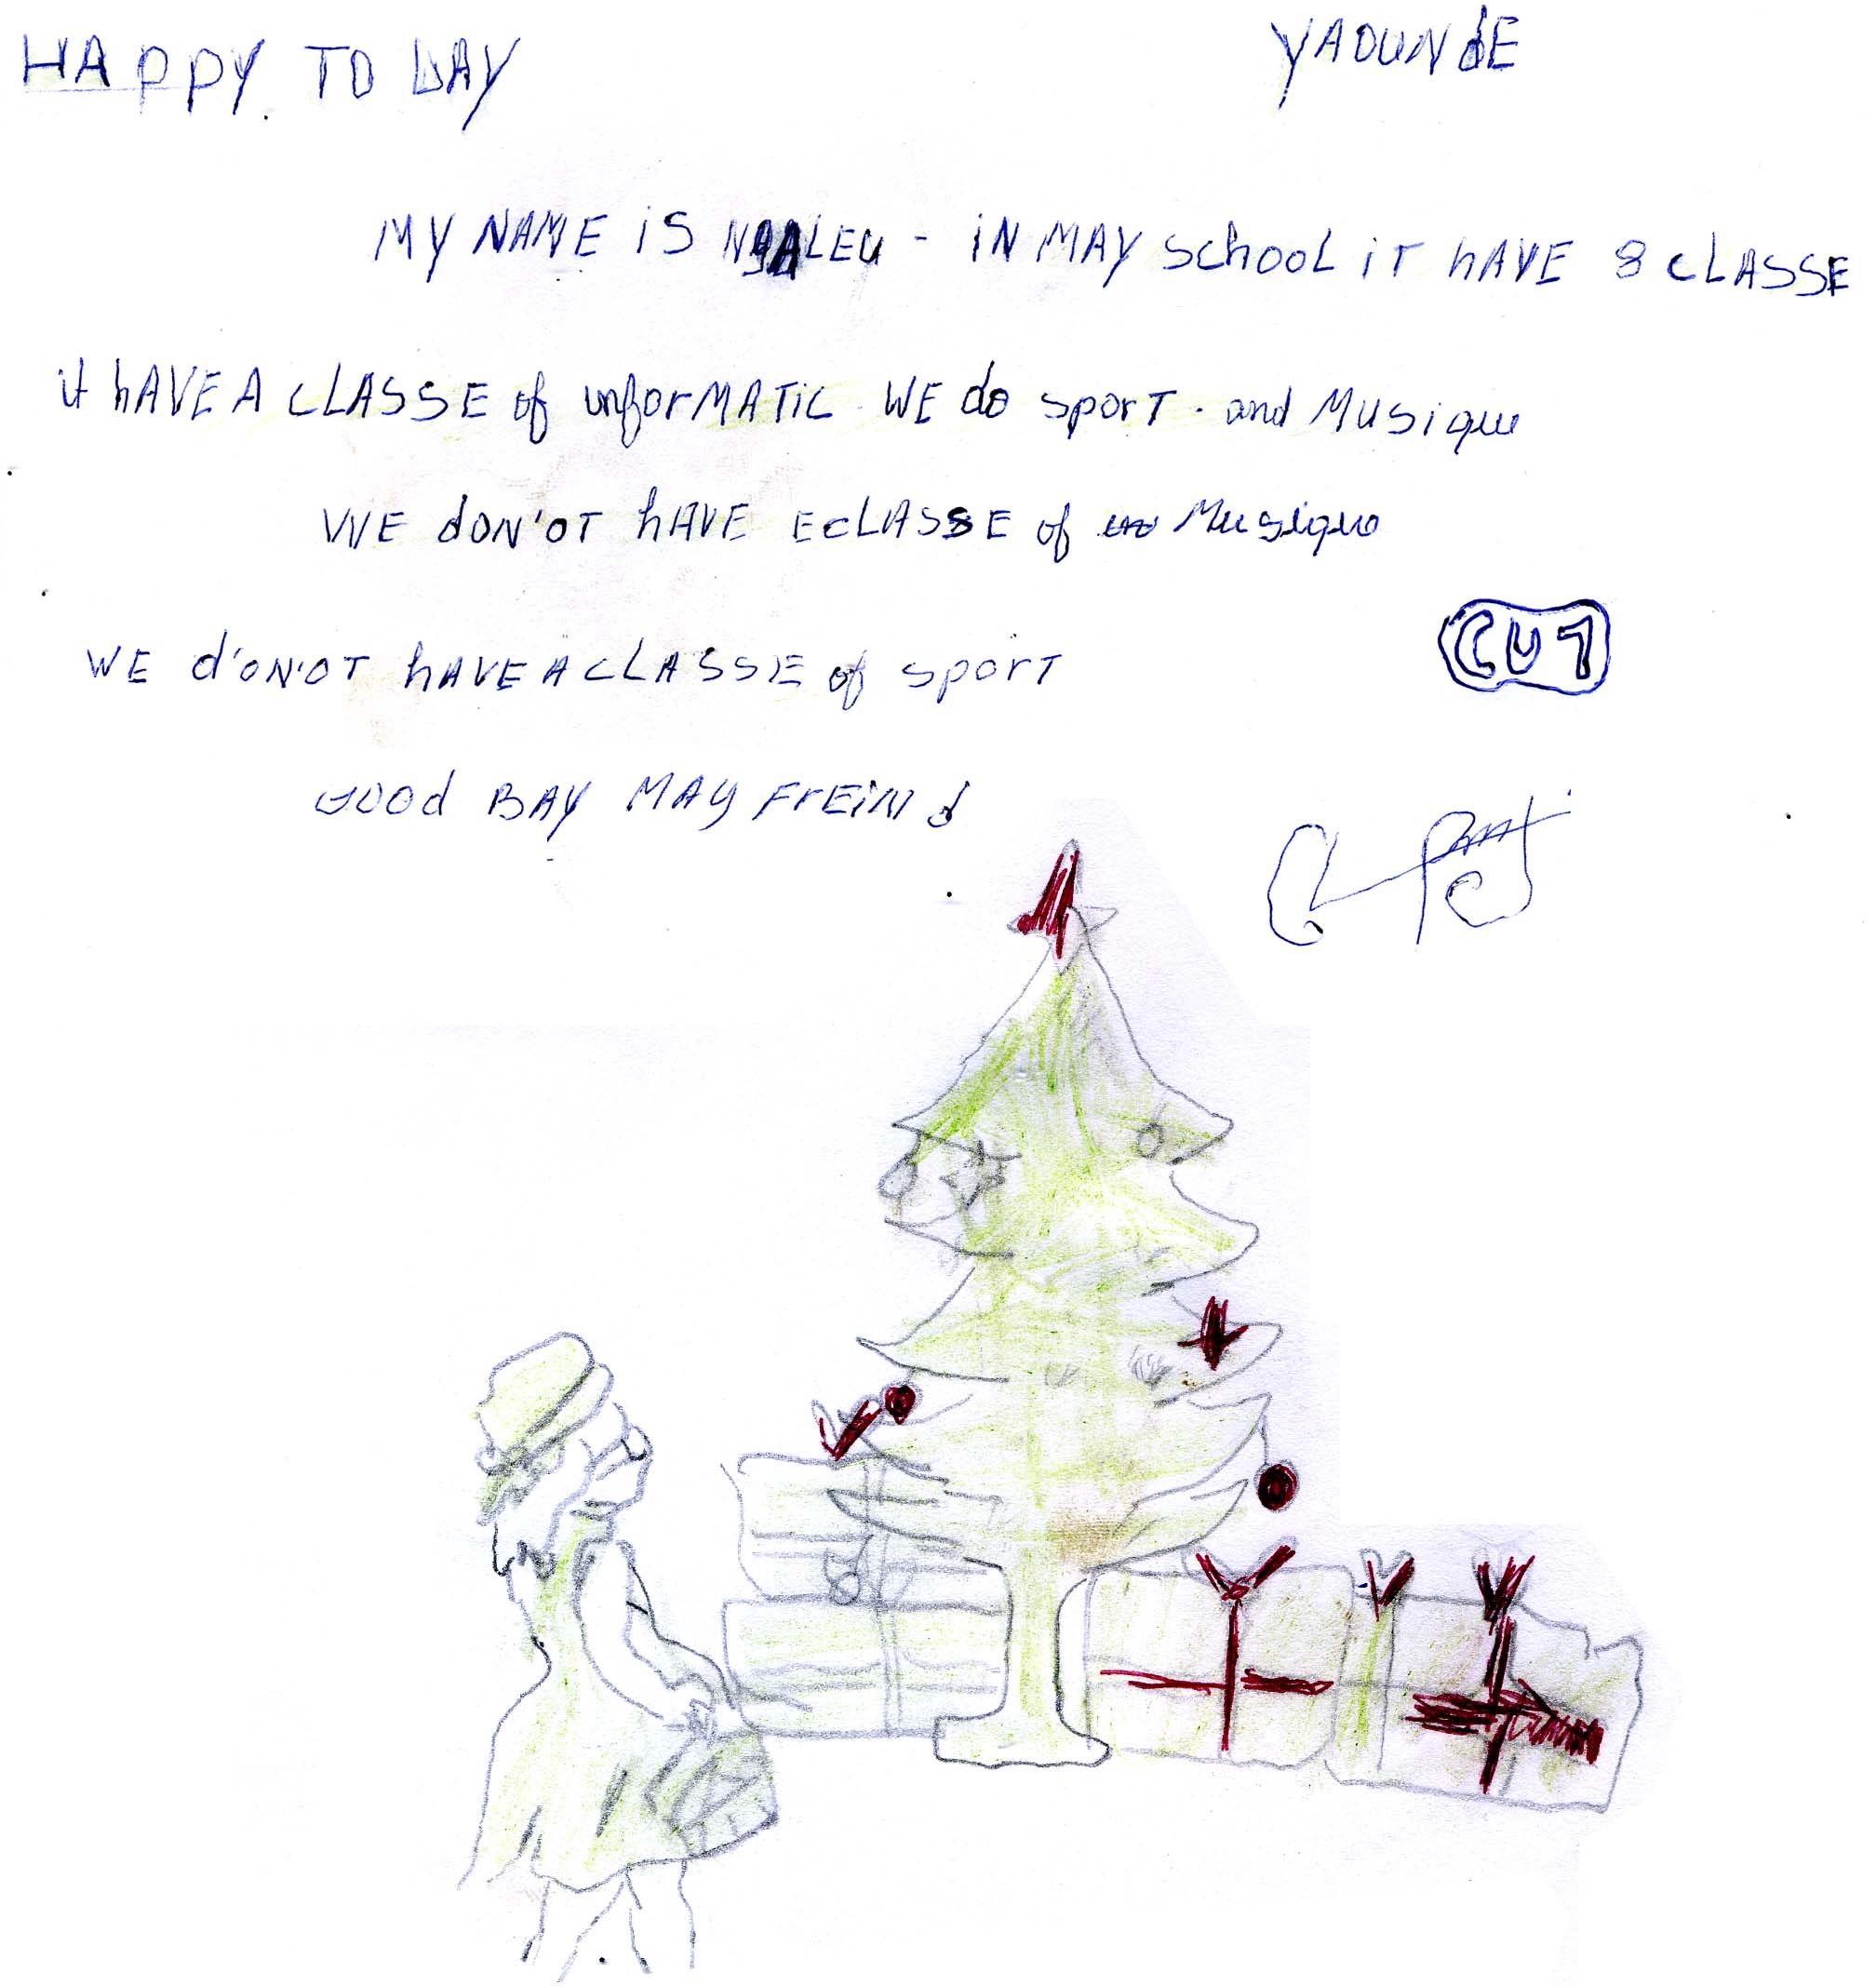 HAPPY TO DAY
YAOUNdE
MY NAME iS - iN MAY school iT hAVE 8 CLASSE
it hAVE A CLASSE of informATiC. WE do sporT. and Musique
WE don'oT hAVE EcLASSE of Musique
WE d'oN'OT hAVE A CLASSE of sporT
CU1
Good BAY MAY FrEiNd